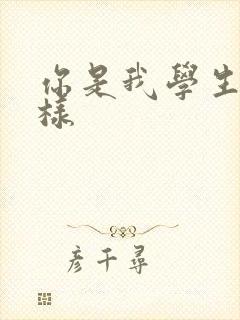 你是我學生
樣
彦千尋